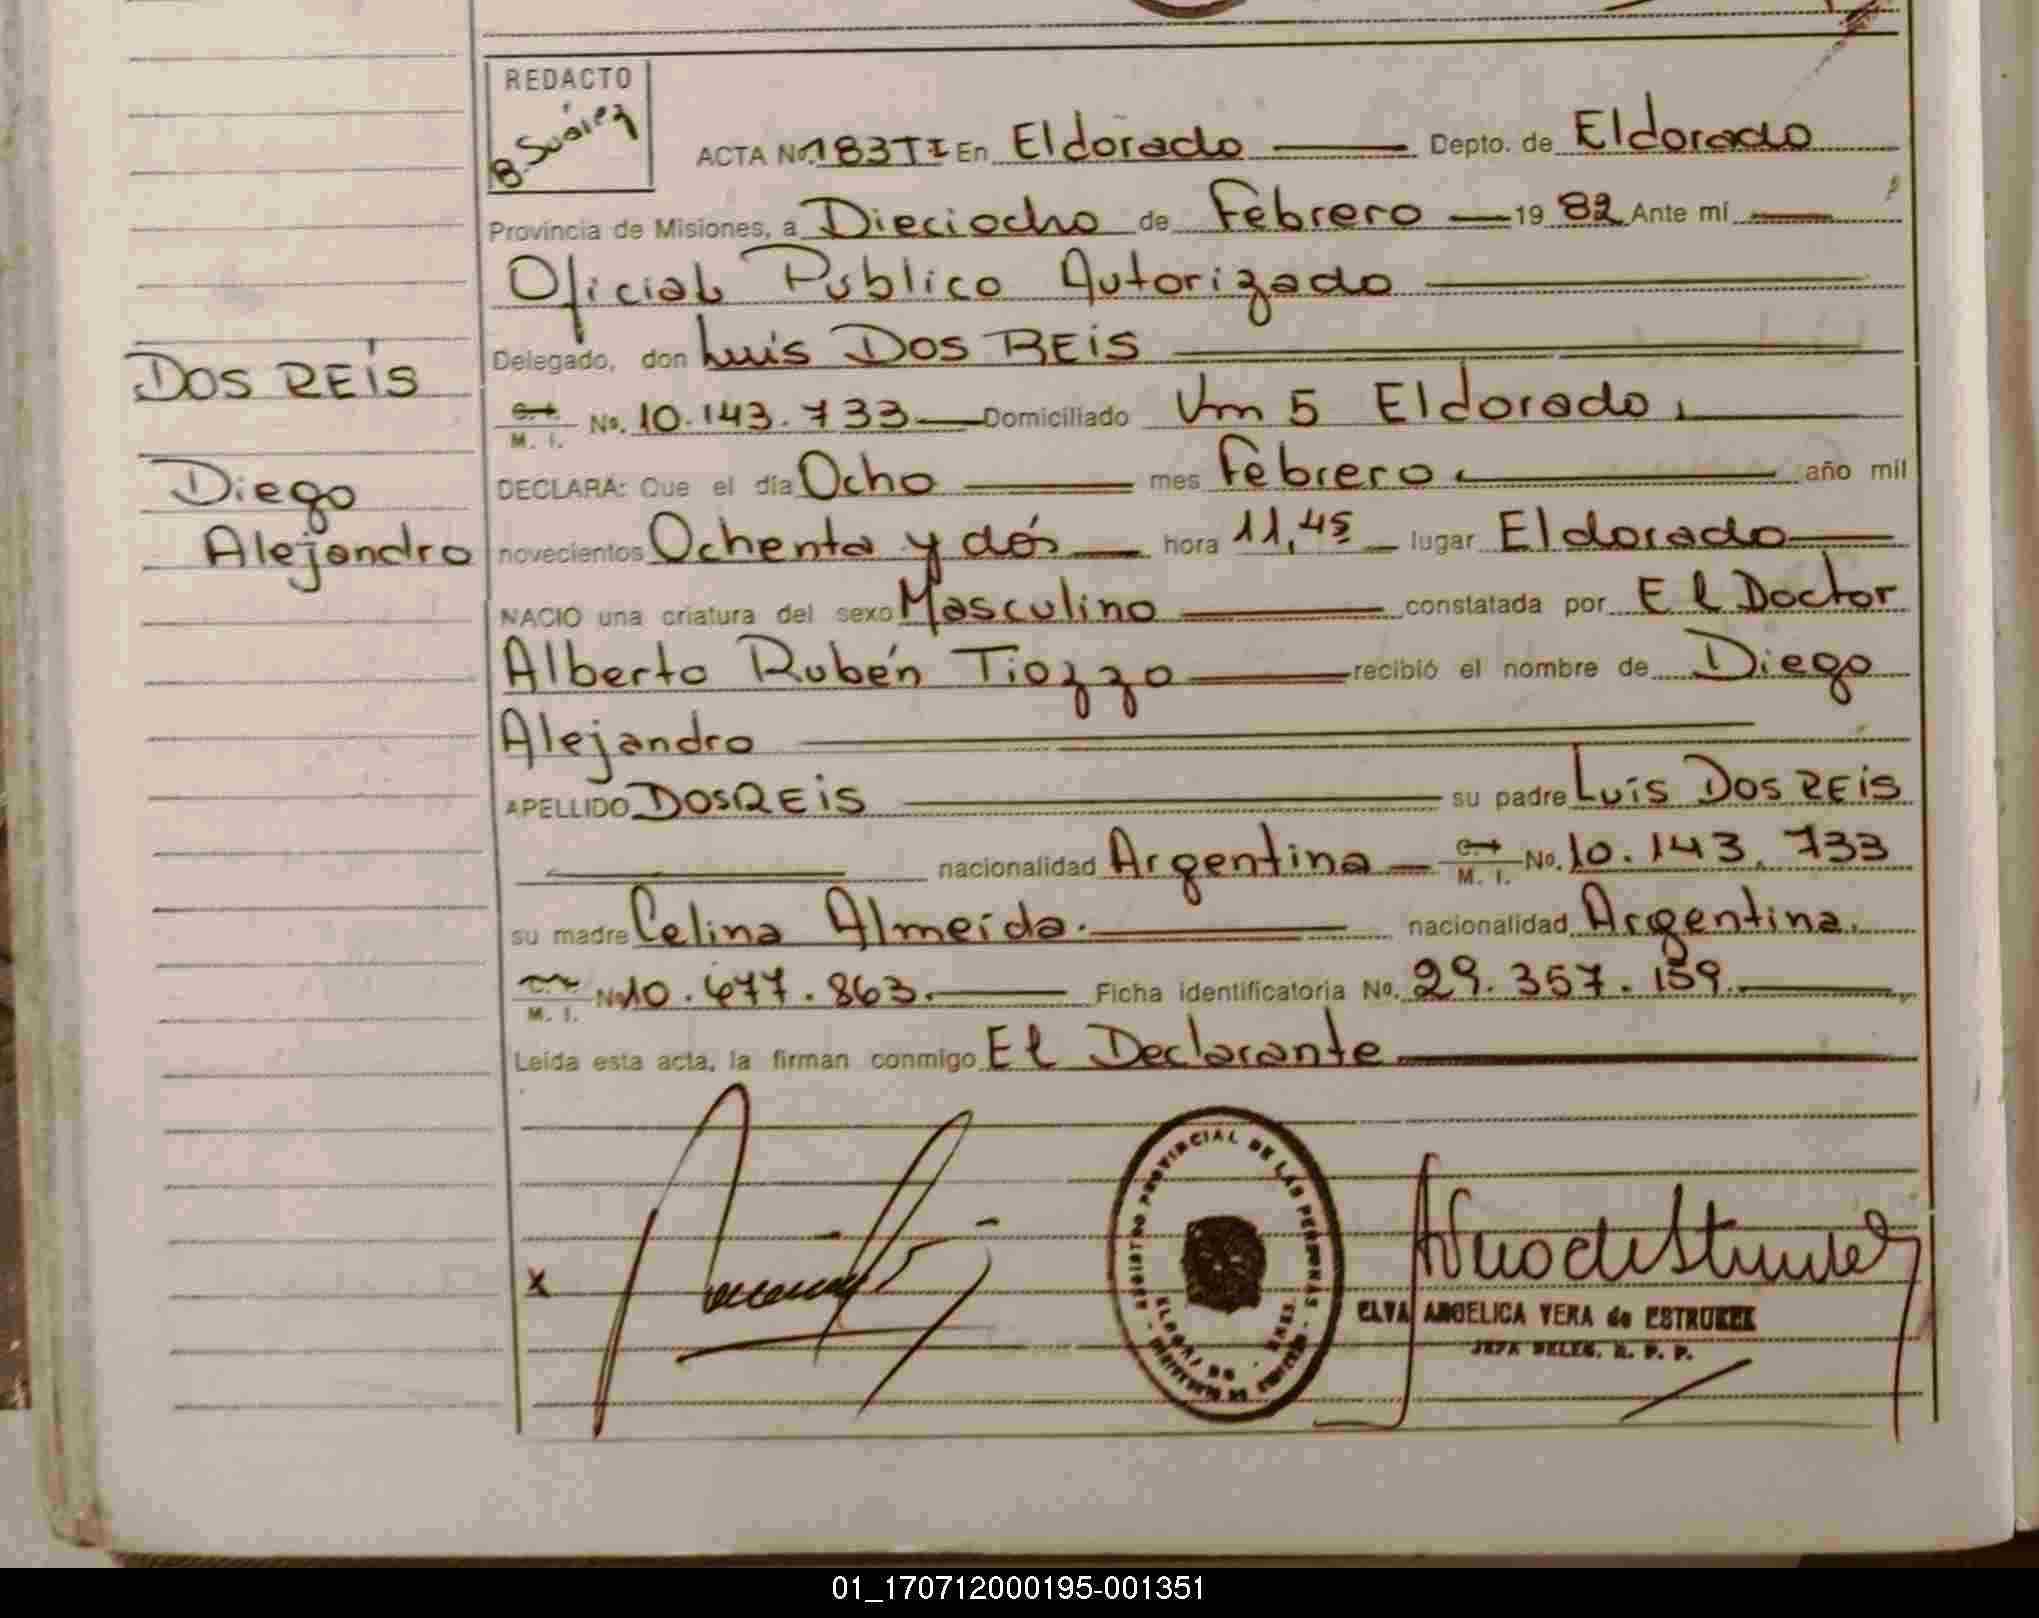 REDACTO
B. Suárez
ACTA No. 183 TI En Eldorado Depto. de Eldorado
Provincia de Misiones, a Dieciocho de Febrero 19 82 Ante mí
Oficial Público Autorizado
Delegado, don Luis DOS REIS
M. I. No. 10.143.733 Domiciliado Km 5 Eldorado,
DECLARA: Que el día Ocho mes Febrero año mil
novecientos Ochenta y dós hora 11,45 lugar Eldorado
NACIO una criatura del sexo Masculino constatada por El Doctor
Alberto Rubén Tiozzo recibió el nombre de Diego
Alejandro
APELLIDO DOS REIS su padre Luis DOS REIS
nacionalidad Argentina M. I. No. 10.143.733
su madre Celina Almeida. nacionalidad Argentina.
M. I. No 10.677.863. Ficha identificatoria No. 29.357.159.
Leida esta acta, la firman conmigo El Declarante
DOS REIS
Diego
Alejandro
x
REGISTRO PROVINCIAL DE LAS PERSONAS
ELDORADO
ELVA ANGELICA VERA de ESTRUKEK
JEFA DELEG. R. P. P.
01_170712000195-001351